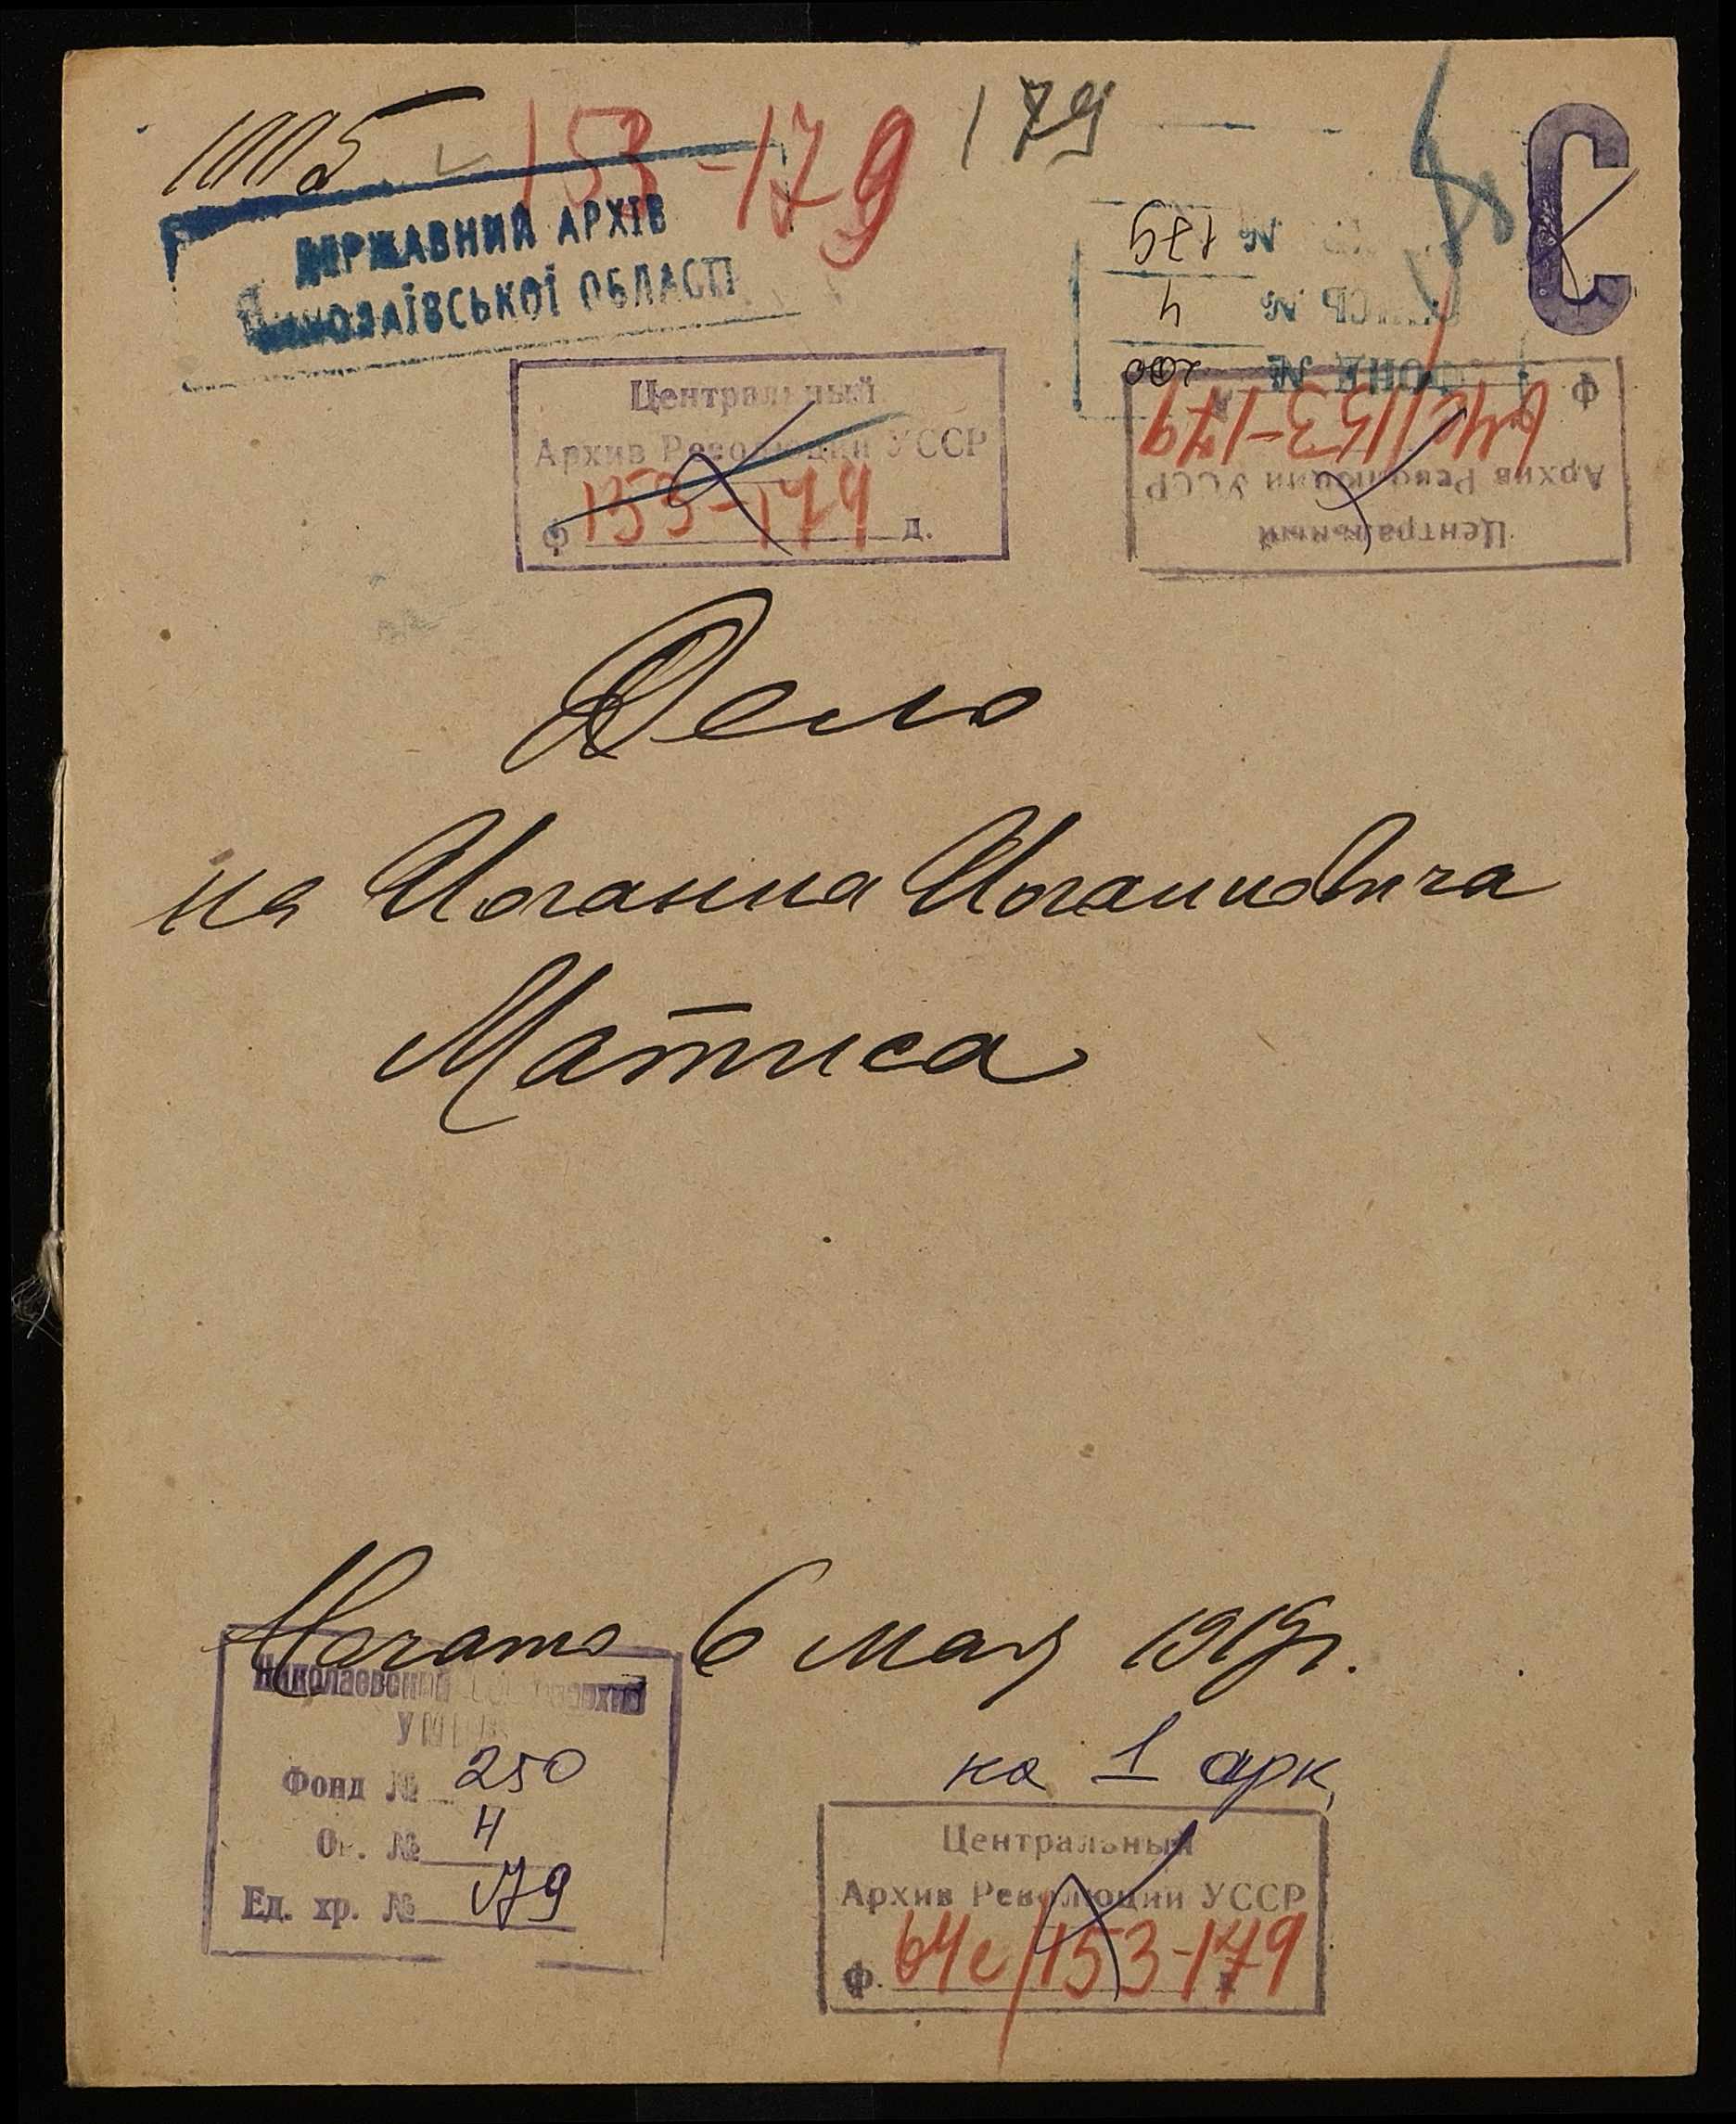 153-179
179
ДЕРЖАВНИЙ АРХІВ
МИКОЛАЇВСЬКОЇ ОБЛАСТІ
С
№ 179
ОПИСЬ № 4
ФОНД №
Центральный
Архив Революции УССР
Ф 153-179 д.
Центральный
Архив Революции УССР
Ф 64с/153-179
Дело
на Иоганна Иогановича
Матиса
Начато 6 мая 1919г.
на 1 арк.
Николаевский
Фонд № 250
Оп. № 4
Ед. хр. № 179
Центральный
Архив Революции УССР
Ф. 64с/153-179